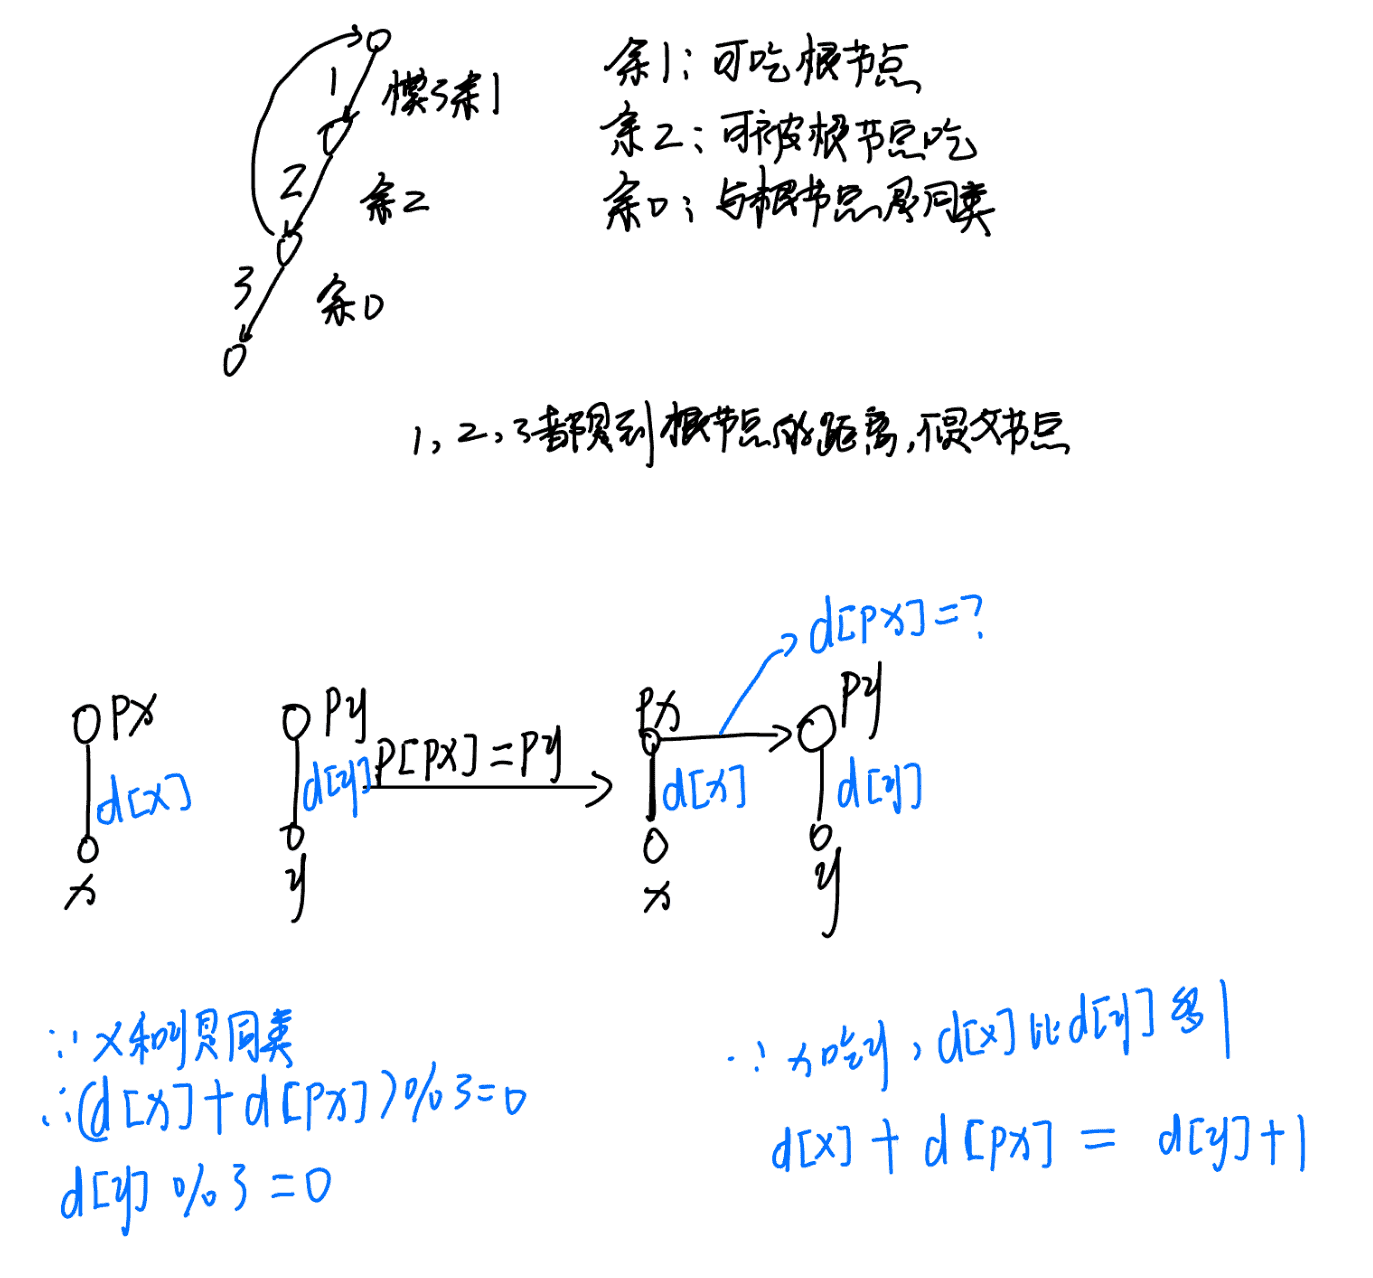 1
模3余1
2
余2
3
余0
余1：可吃根节点
余2：可被根节点吃
余0：与根节点是同类
1，2，3都是到根节点的距离，不是父节点
d[px]=?
px
d[x]
x
py
d[y]
y
p[px]=py
px
d[x]
x
py
d[y]
y
∵x和y是同类
∴(d[x]+d[px])%3=0
d[y]%3=0
∵x吃y，d[x]比d[y]多1
d[x]+d[px]=d[y]+1